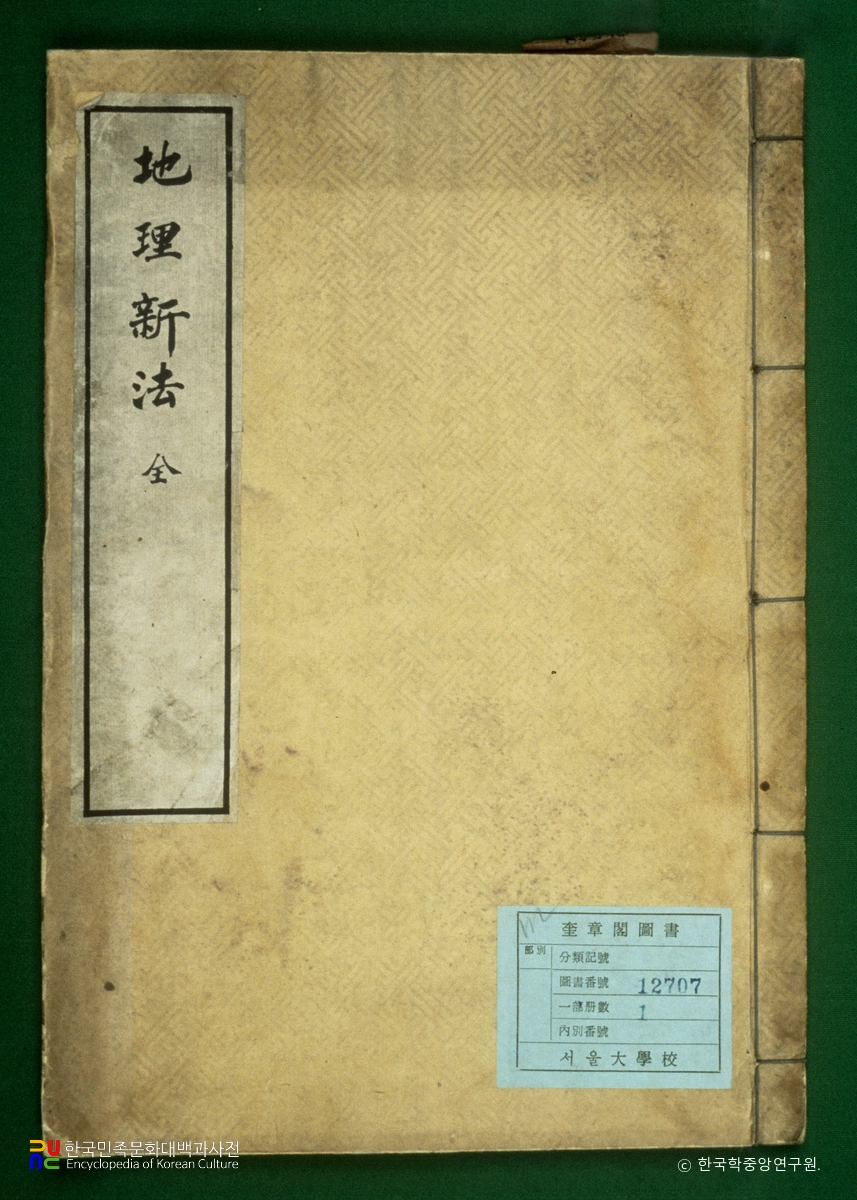 地理新法 全
奎章閣圖書
部別
分類記號
圖書番號 12707
一部册數 1
內別番號
서울大學校
한국민족문화대백과사전
Encyclopedia of Korean Culture
© 한국학중앙연구원.